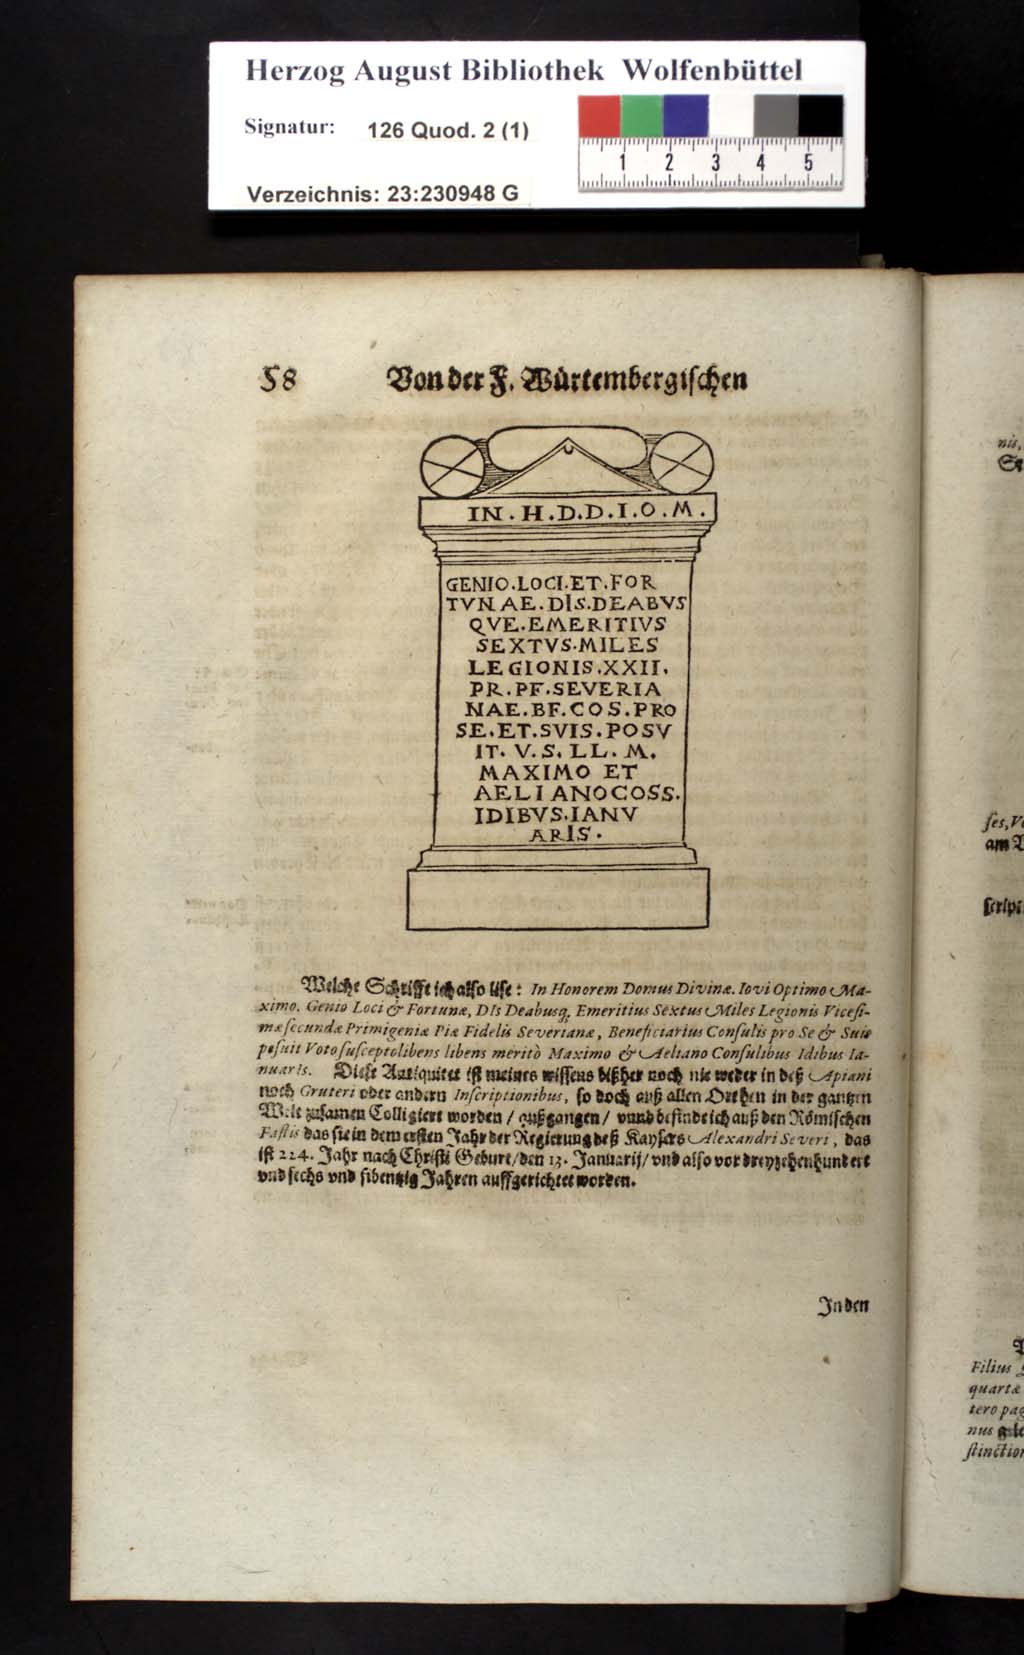 Herzog August Bibliothek Wolfenbüttel
Signatur: 126 Quod. 2 (1)
1 2 3 4 5
Verzeichnis: 23:230948 G
58 Von der F. Würtembergischen
IN . H . D . D . I . O . M .
GENIO . LOCI . ET . FOR
TVNAE . DIS . DEABVS
QVE . EMERITIVS
SEXTVS . MILES
LEGIONIS . XXII .
PR . PF . SEVERIA
NAE . BF . COS . PRO
SE . ET . SVIS . POSV
IT . V . S . LL . M .
MAXIMO ET
AELIANO COSS .
IDIBVS . IANV
ARIS .
Welche Schrifft ich also lise: In Honorem Domus Divinæ. Iovi Optimo Ma-
ximo. Genio Loci & Fortunæ, DIs Deabusq; Emeritius Sextus Miles Legionis Vicesi-
mæ secundæ Primigeniæ Piæ Fidelis Severianæ, Beneficiarius Consulis pro Se & Suis
posuit Voto susceptolibens libens meritò Maximo & Aeliano Consulibus Idibus Ia-
nuaris. Diese Antiquitet ist meines wissens bißher noch nie weder in deß Apiani
noch Gruteri oder andern Inscriptionibus, so doch auß allen Orthen in der gantzen
Welt zusamen Colligiert worden / außgangen / vnnd befinde ich auß den Römischen
Fastis das sie in dem ersten Jahr der Regierung deß Kaysers Alexandri Severi, das
ist 224. Jahr nach Christi Geburt / den 13. Januarij / vnd also vor dreyzehenhundert
vnd sechs vnd sibentzig Jahren auffgerichtet worden.
In den
nis,
ses, V
am
script
Filius
quartæ
tero pag
nus
stinction